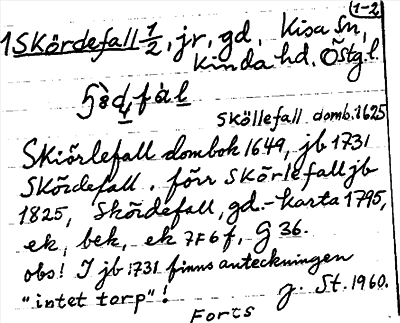 1-2
1 Skördefall 1/2, jr, gd, Kisa sn,
Kinda hd. Östg.l.
Sköllefall domb. 1625
Skiörlefall dombok 1649, jb 1731
Skördefall. förr Skörlefall jb
1825, Skördefall, gd.-karta 1795,
ek, bek, ek 7F6f, G 36.
obs! I jb 1731 finns anteckningen
"intet torp"!
J. St. 1960.
Forts